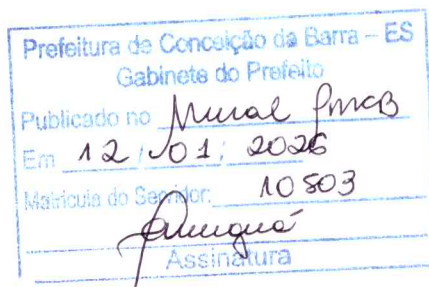 Prefeitura de Conceição da Barra – ES
Gabinete do Prefeito
Publicado no Mural PMCB
Em 12 / 01 / 2026
Matricula do Servidor: 10503
Assinatura